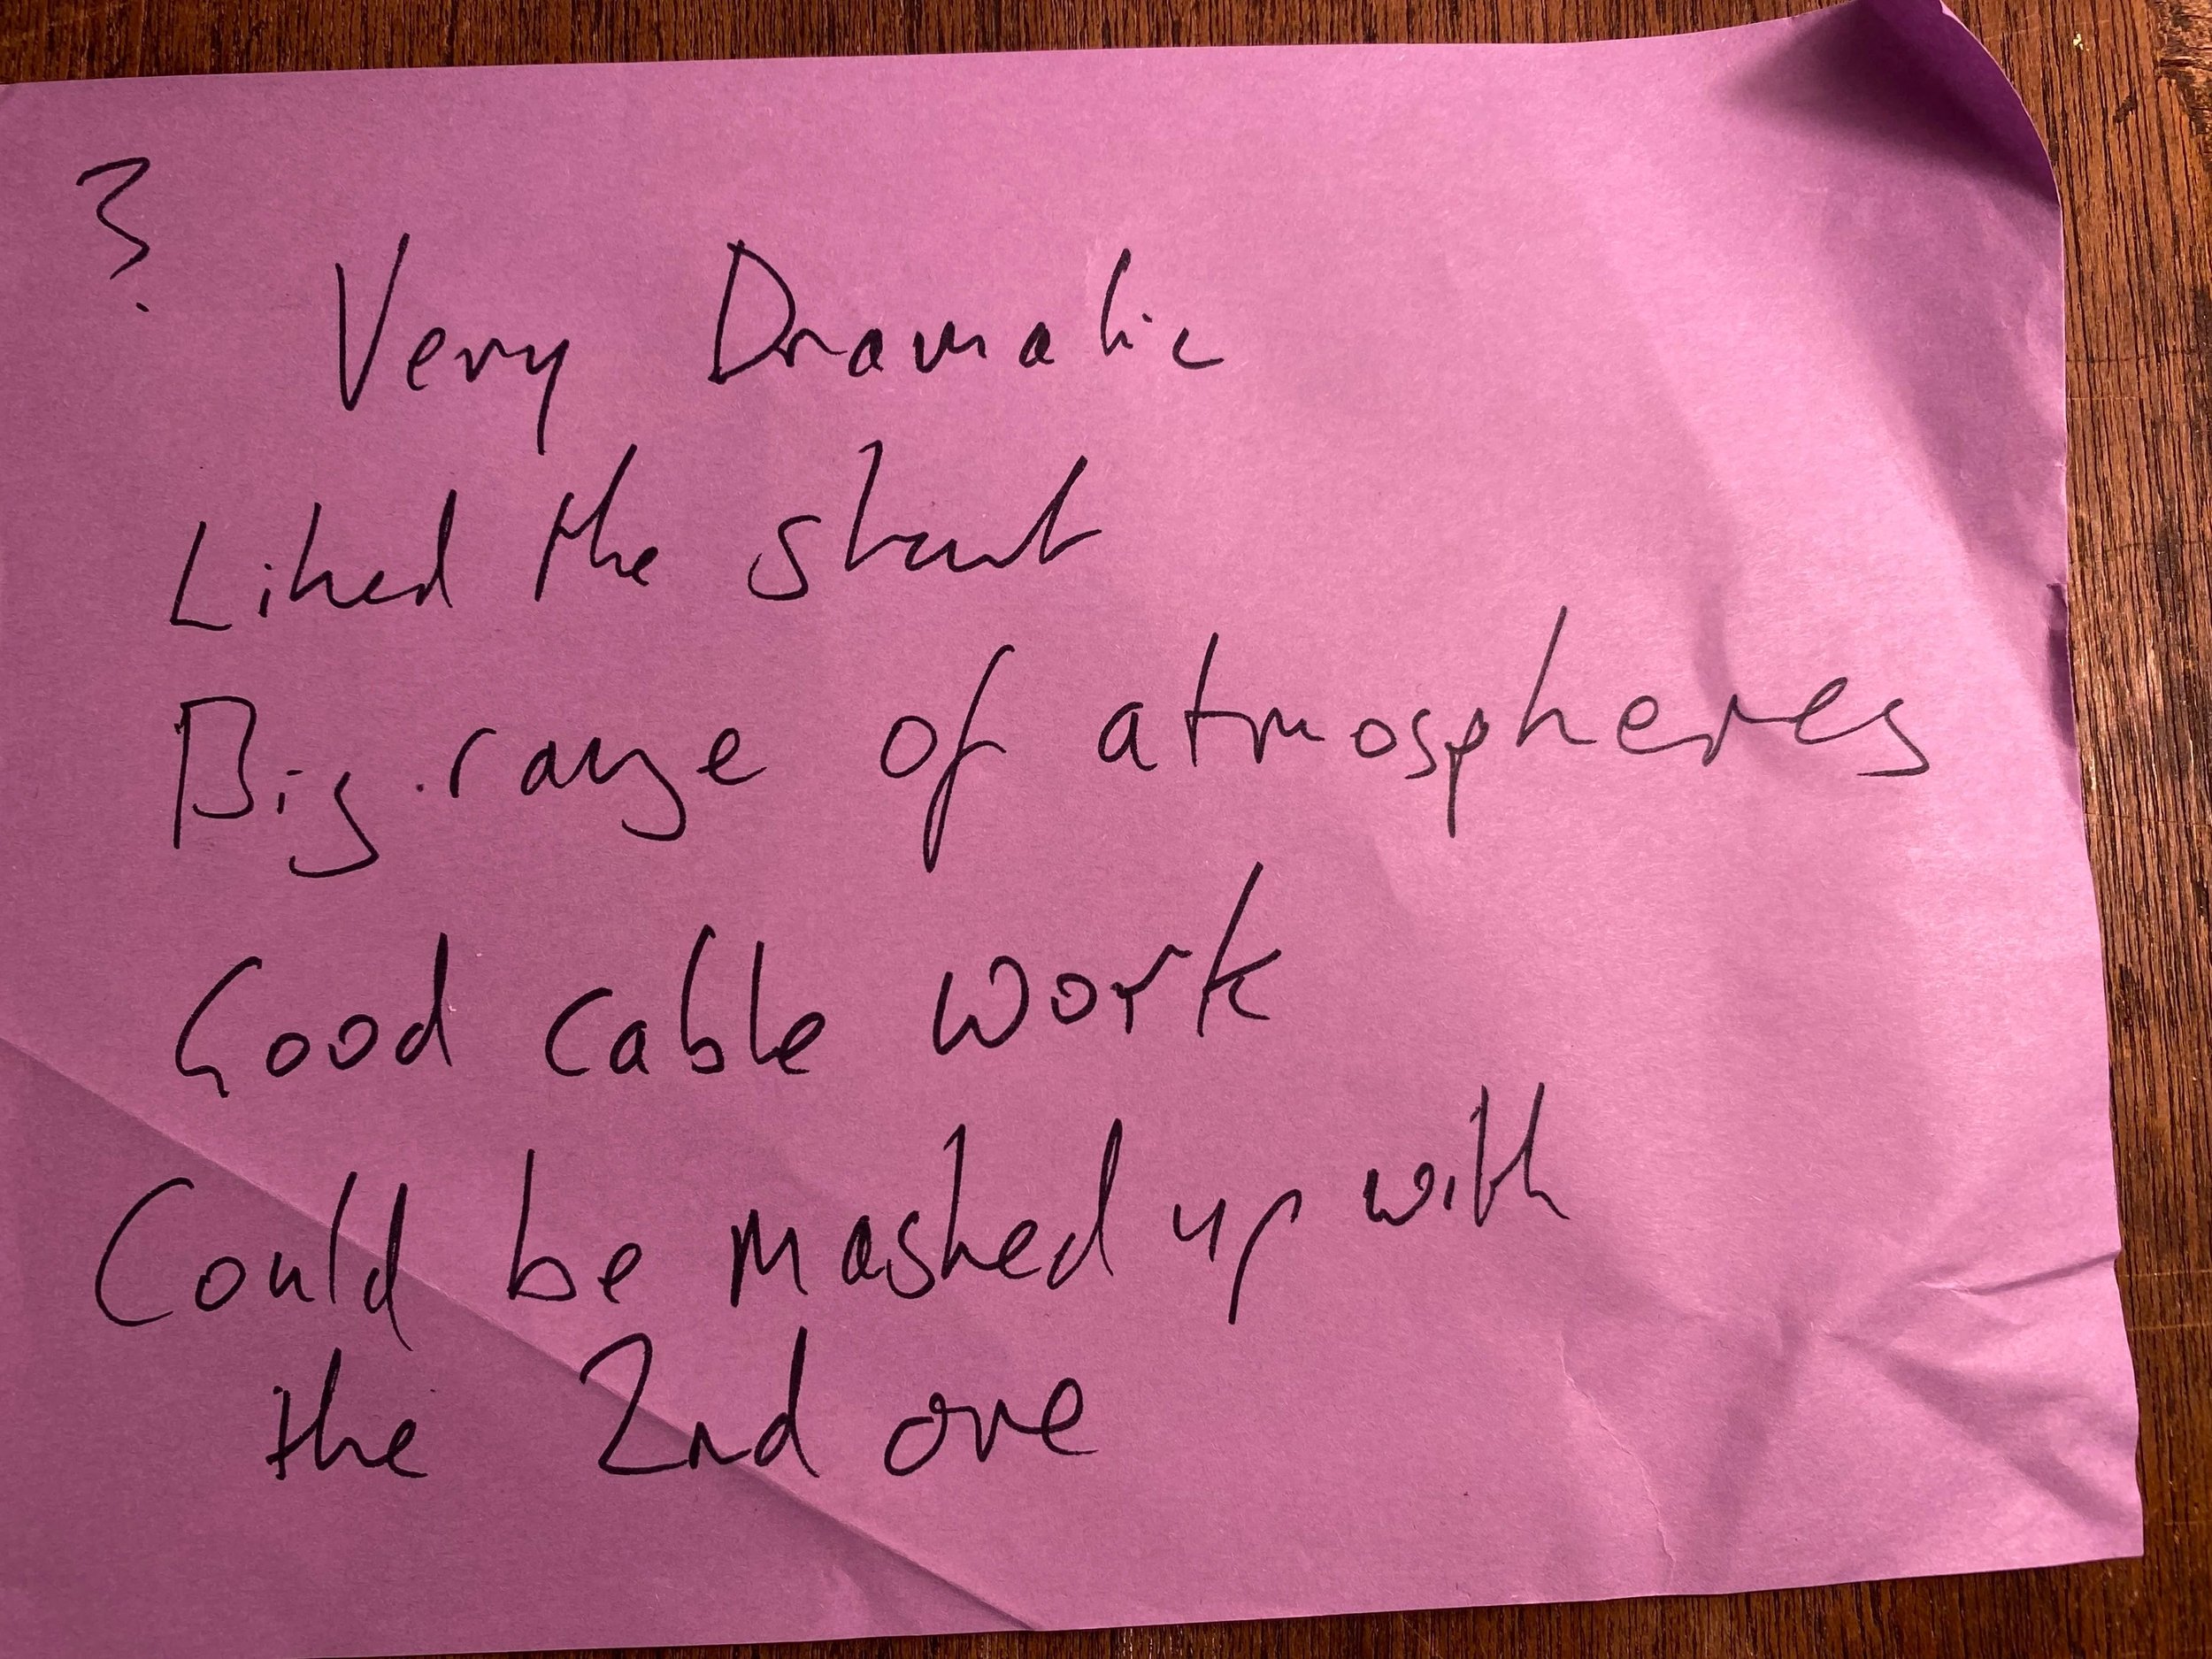 3.
Very Dramatic
Liked the start
Big range of atmospheres
Good cable work
Could be mashed up with
the 2nd one